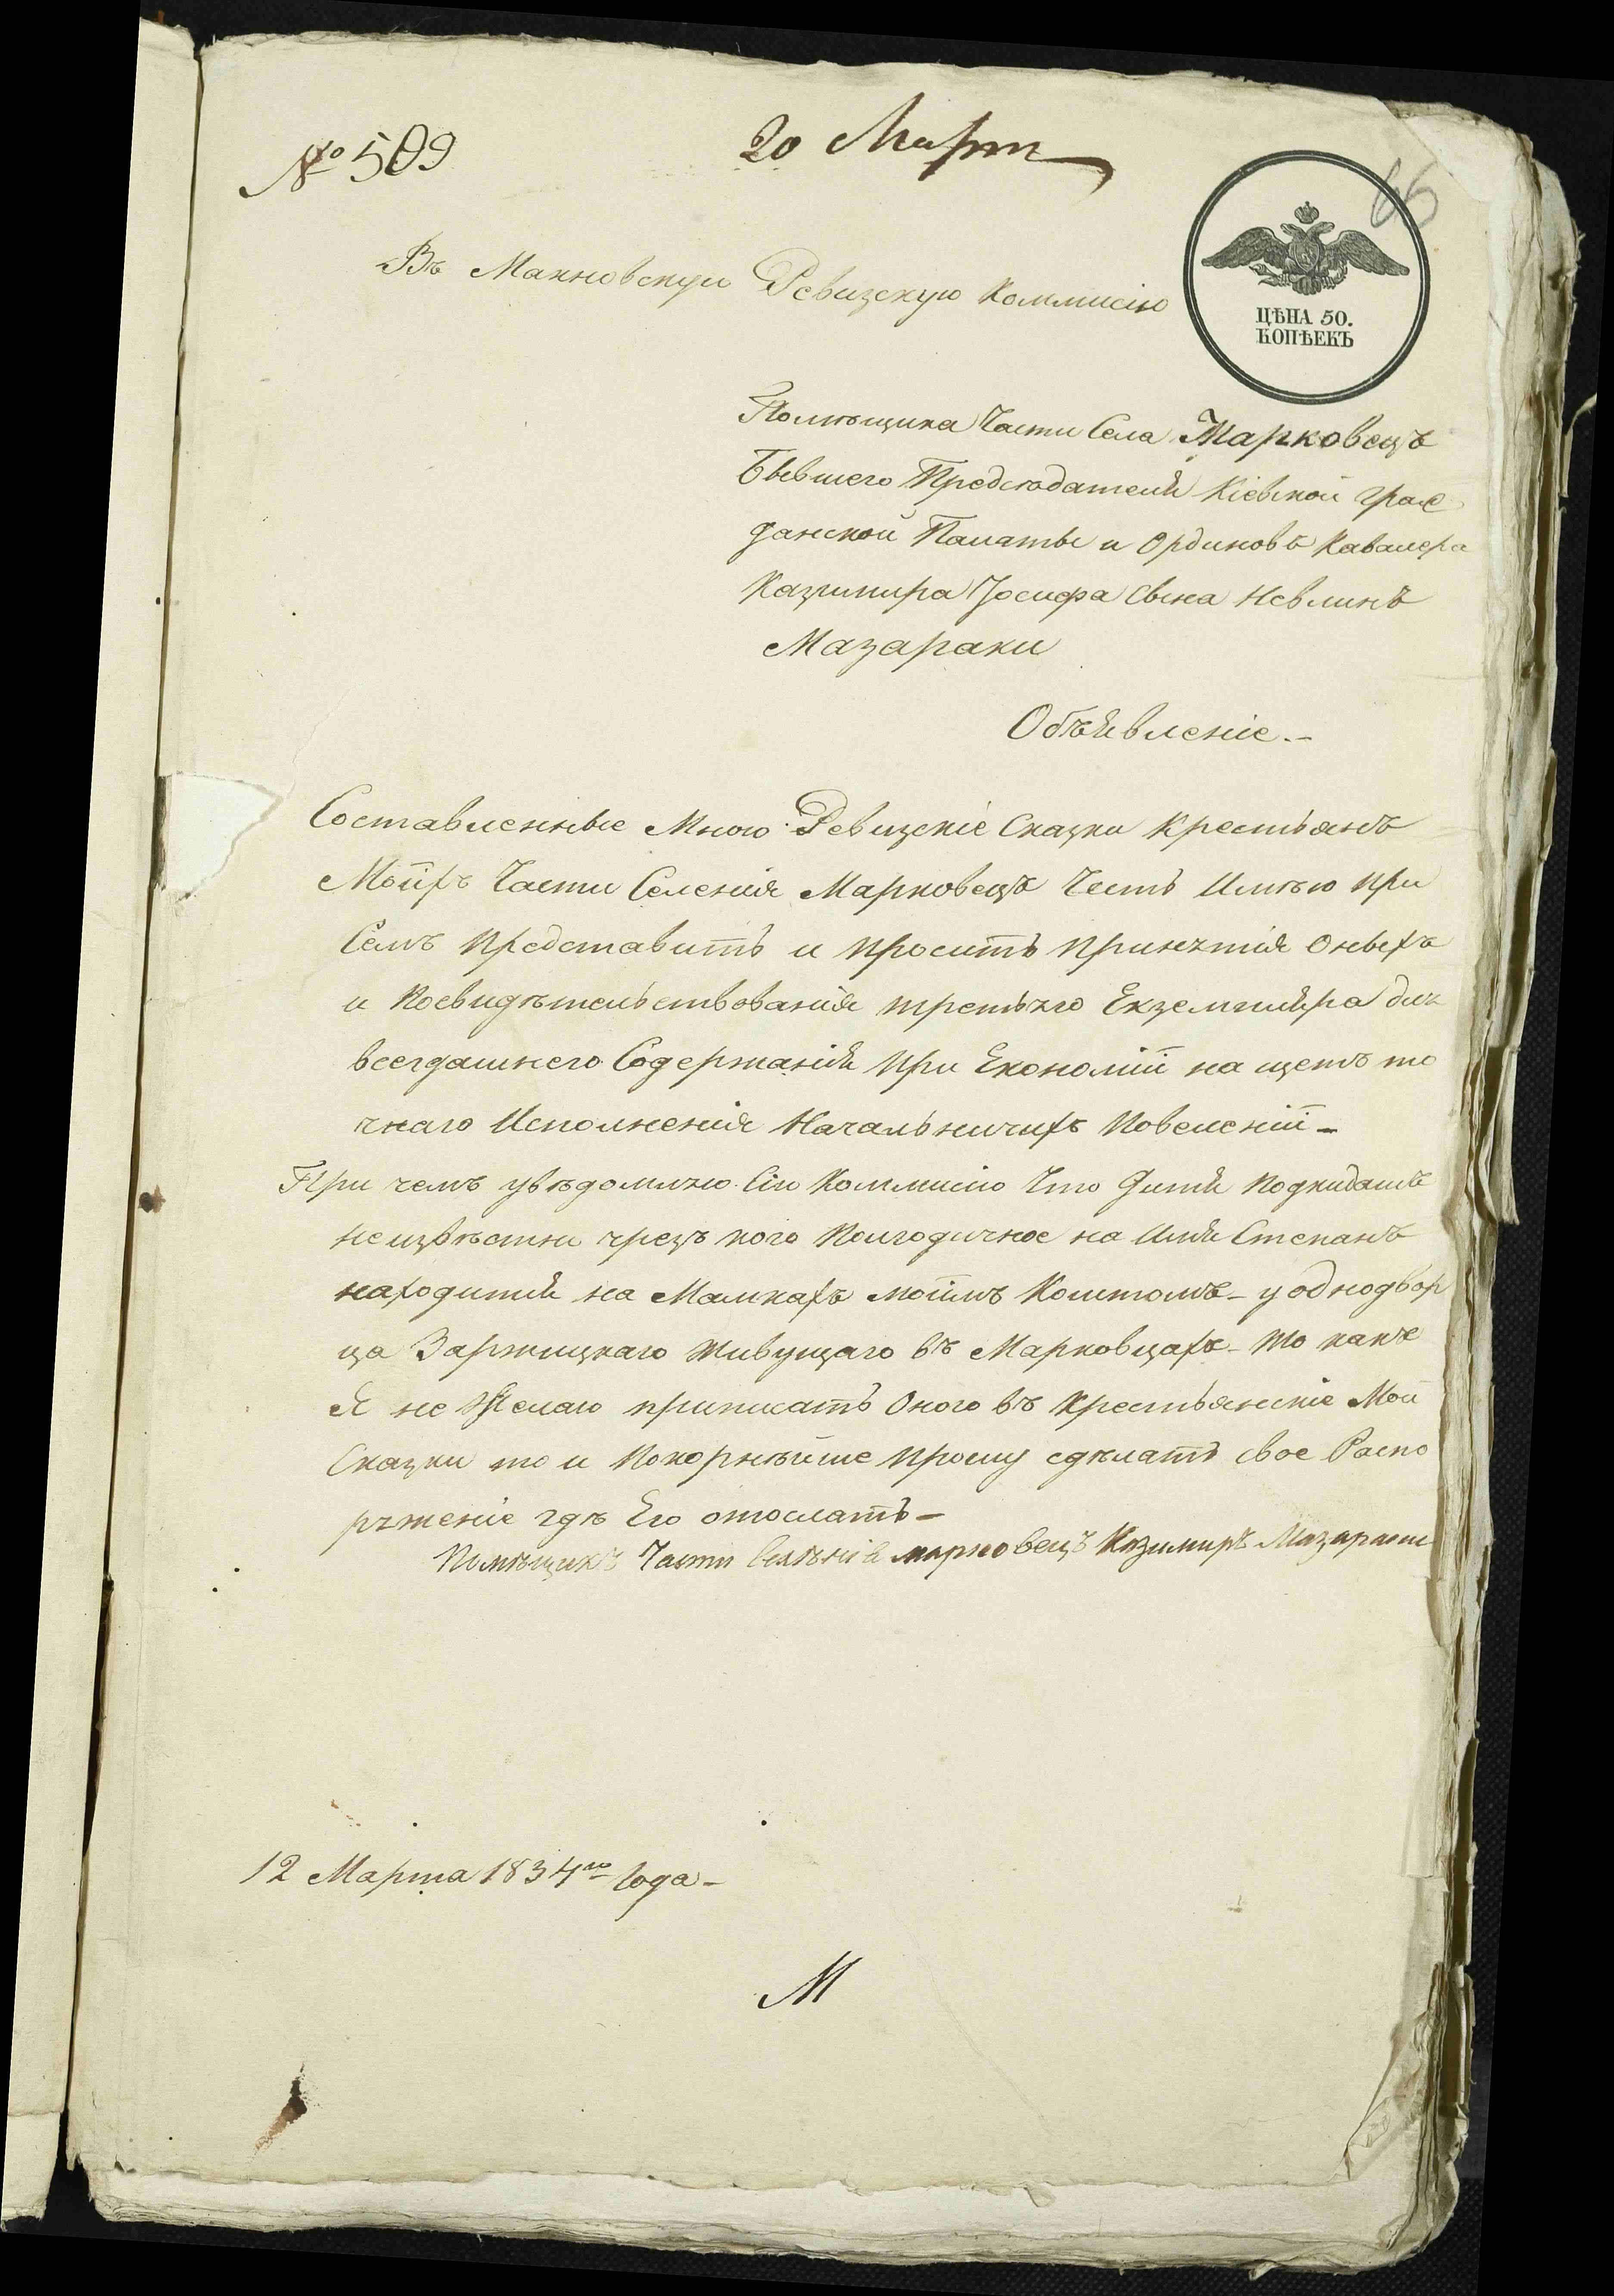 № 509
20 Март
66
Въ Махновскую Ревизскую Коммисію
ЦѢНА 50.
КОПѢЕКЪ
Помѣщика Части Села Марковецъ
Бывшего Предсѣдателя Кіевской Граж
данской Палаты и Ординовъ Кавалера
Казимира Іосифа Сына Невлинъ
Мазараки
Объявленіе.-
Составленные Мною Ревизскіе Сказки Крестьянъ
Моихъ Части Селенія Марковецъ Честь Имѣю При
Семъ Представить и просить принятія оныхъ
и Посвидѣтельствованія третьяго Екземпляра для
всегдашнего Содержанія При Економіи на щетъ то
чнаго Исполненія Начальничихъ Повеленій -
При чемъ увѣдомляю Сію Коммисію Что Дитя Подкидышъ
неизвѣстни чрезъ кого Полгодичное на Имя Степанъ
находится на Мамкахъ моимъ Коштомъ - у однодвор
ца Заржицкаго Живущаго въ Марковцахъ - То какъ
Я не Желаю приписать Оного въ Крестьянскіе Мои
Сказки то и Покорнѣйше Прошу сдѣлать свое Распо
ряженіе гдѣ Его отослать -
Помѣщикъ Части Селѣнія Марковецъ Казимиръ Мазараки
12 Марта 1834го Года -
М